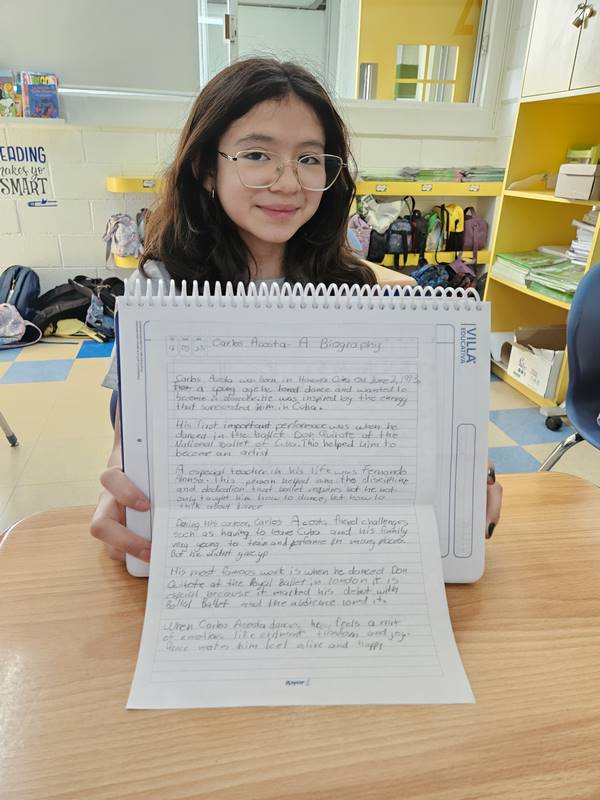 READING
makes yo
SMART
VILLA
EDUCATIVA
Carlos Acosta - A Biography
Carlos Acosta was born in Havana Cuba on June 2, 1973.
a young age he loved dance and wanted to
become a dancer. He was inspired by the energy
that surrounded him in Cuba.
His first important performance was when he
danced in the ballet Don Quixote of the
National Ballet of Cuba. This helped him to
become an artist
A especial teacher in his life was Fernando
Alonso. This person helped him the discipline
and dedication that ballet requires but he not
only taught him how to dance, but how to
talk about dance
During his career, Carlos Acosta faced challenges
such as having to leave Cuba and his family
very young to train and performe in many places.
But he didnt give up
His most famous work is when he danced Don
Quixote at the Royal Ballet in london it is
especial because it marked his debut with
Ballet and the audience loved it.
When Carlos Acosta dances, he feels a mix
of emotions like freedom and joy.
Dance makes him feel alive and happy